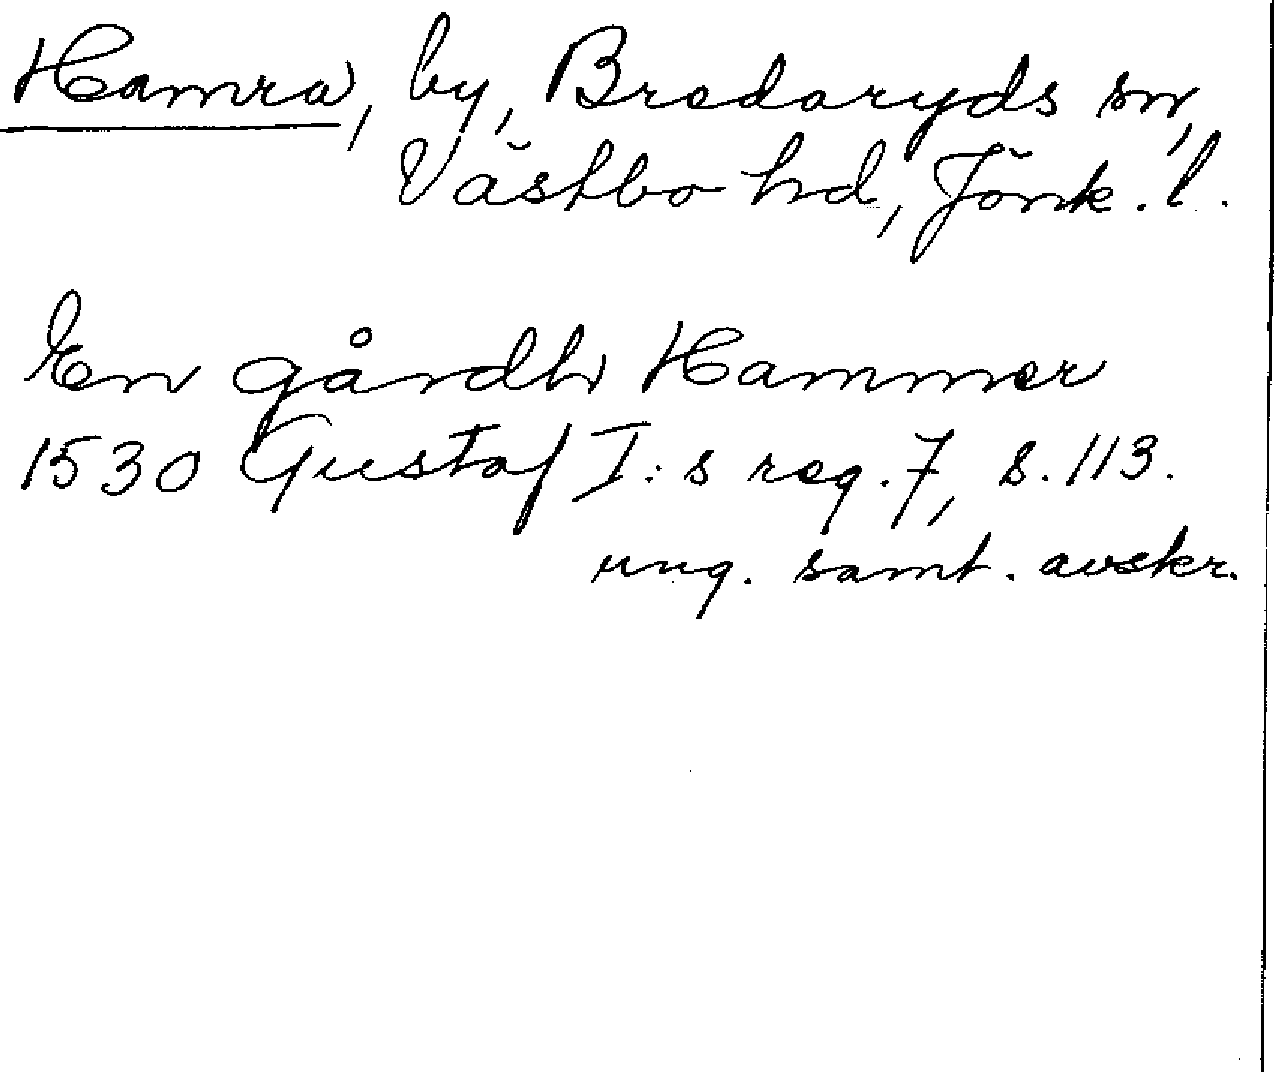 Hamra, by, Bredaryds sn,
Västbo hd, Jönk. l.
En gårdh Hammer
1530 Gustaf I:s reg. 7, s. 113.
ung. samt. avskr.